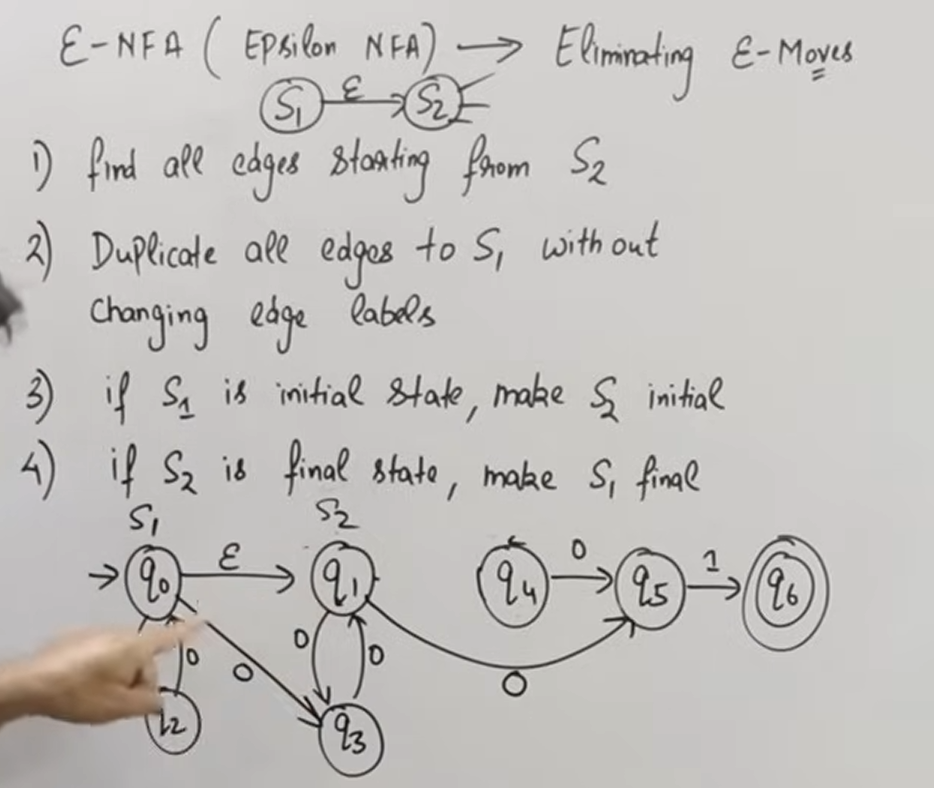 ε-NFA ( Epsilon NFA) → Eliminating ε-Moves
S1 ε S2
1) find all edges starting from S2
2) Duplicate all edges to S1 with out
changing edge labels
3) if S1 is initial state, make S2 initial
4) if S2 is final state, make S1 final
S1 S2
q0 ε q1 q4 0 q5 1 q6
0 0 0 0 0
q3